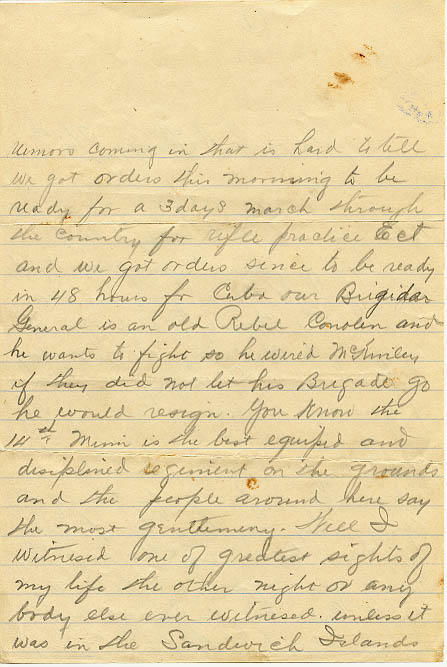 rumors coming in that is hard to tell
we got orders this morning to be
ready for a 3 days march through
the country for rifle practice Ect
and we got orders since to be ready
in 48 hours for Cuba our Brigidar
General is an old Rebel Conolen and
he wants to fight so he wired McKinley
if they did not let his Brigade go
he would resign. You know the
14th Minn is the best equiped and
disiplined regiment on the grounds
and the people around here say
the most gentlemeny. Well I
witnesed one of greatest sights of
my life the other night or any
body else ever witnesed. unless it
was in the Sandwich Islands